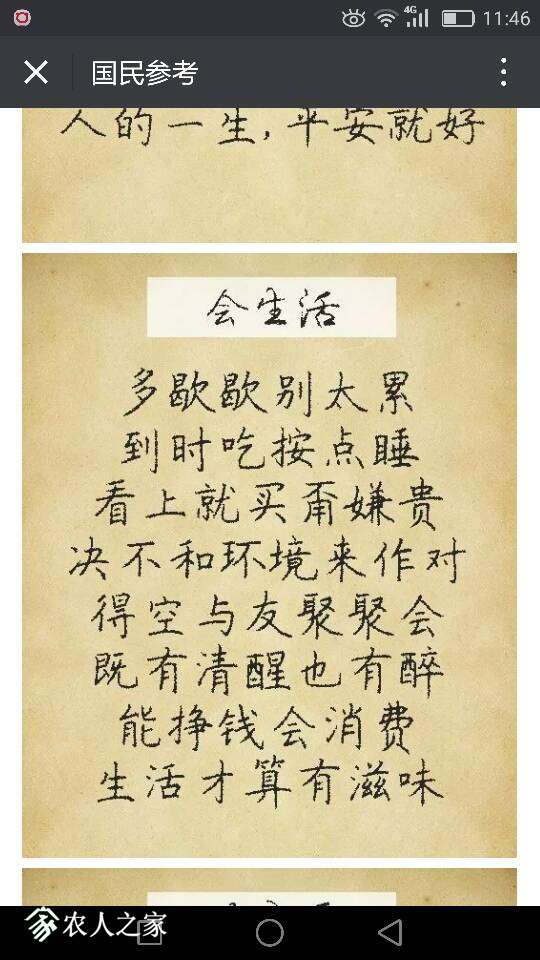 4G 11:46
国民参考
人的一生,平安就好
会生活
多歇歇别太累
到时吃按点睡
看上就买甭嫌贵
决不和环境来作对
得空与友聚聚会
既有清醒也有醉
能挣钱会消费
生活才算有滋味
农人之家